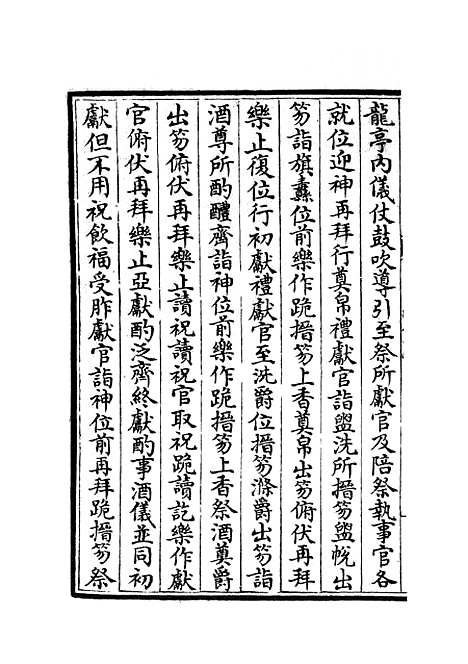 龍亭內儀仗鼓吹導引至祭所獻官及陪祭執事官各
就位迎神再拜行奠帛禮獻官詣盥洗所搢笏盥帨出
笏詣旗纛位前樂作跪搢笏上香奠帛出笏俯伏再拜
樂止復位行初獻禮獻官至洗爵位搢笏滌爵出笏詣
酒尊所酌醴齊詣神位前樂作跪搢笏上香祭酒奠爵
出笏俯伏再拜樂止讀祝讀祝官取祝跪讀訖樂作獻
官俯伏再拜樂止亞獻酌泛齊終獻酌事酒儀並同初
獻但不用祝飲福受胙獻官詣神位前再拜跪搢笏祭